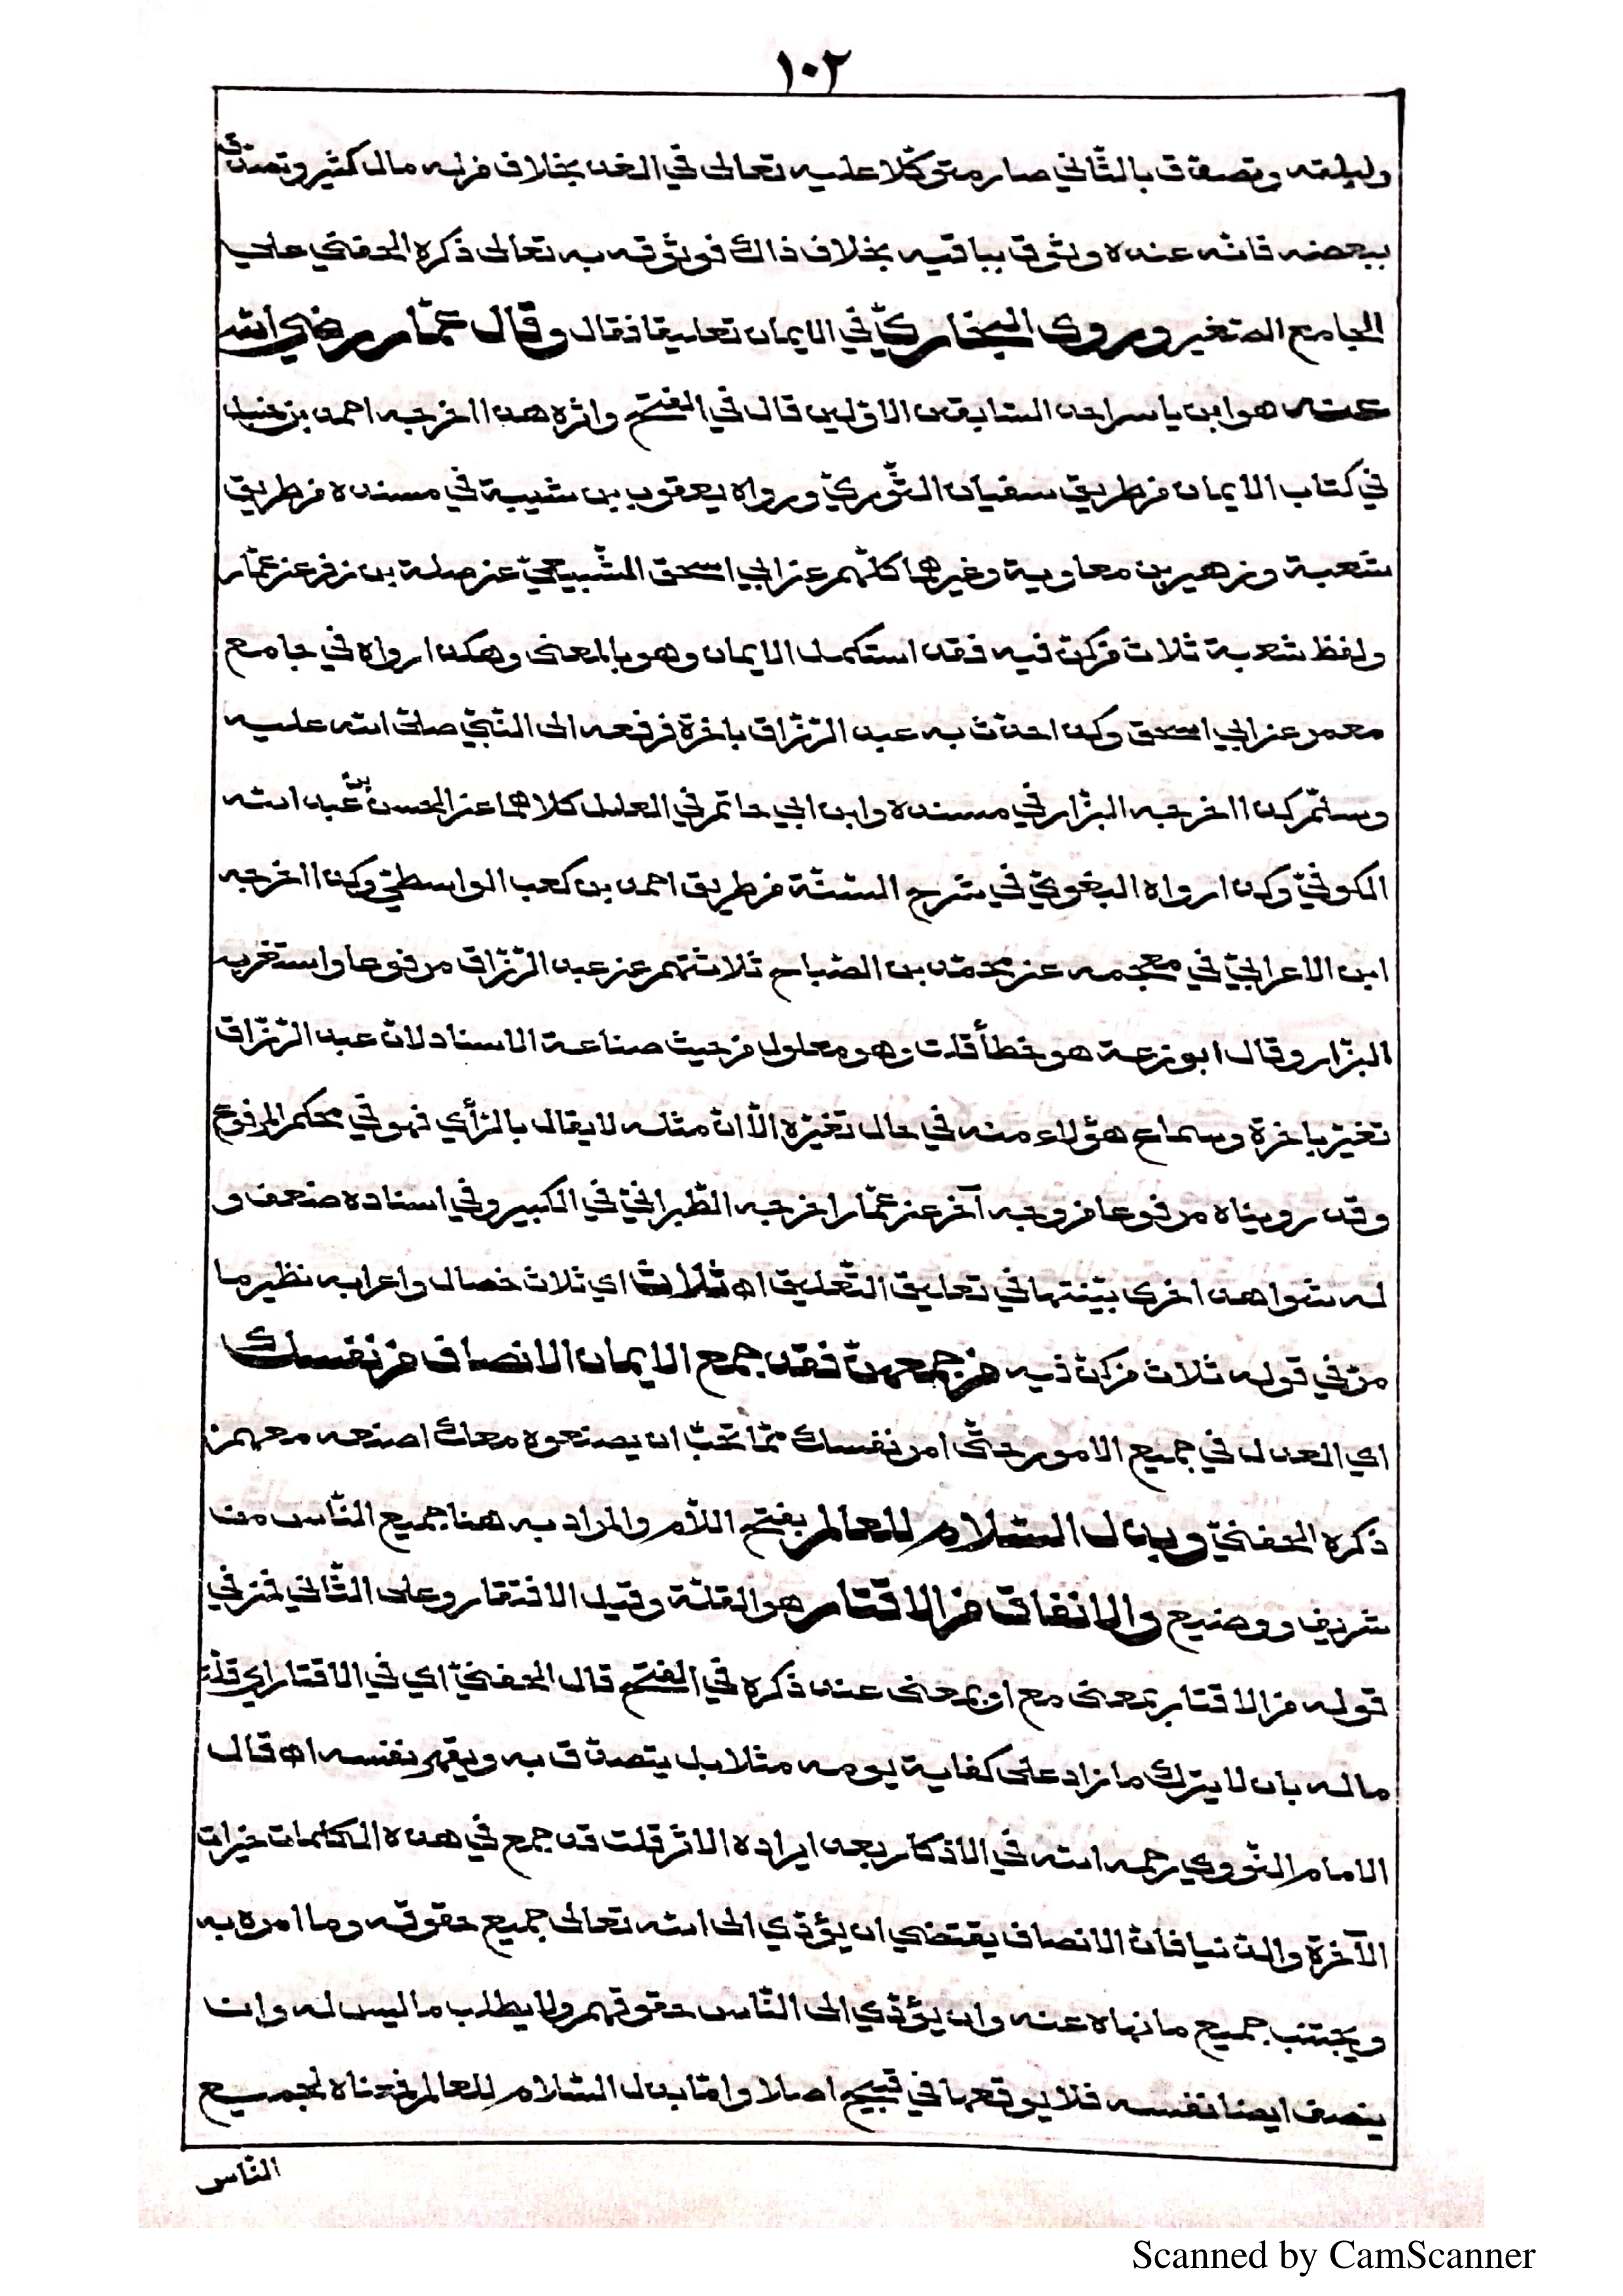 ١٠٢
وليلته وتصدّق بالثّاني صار متوكّلا عليه تعالى في الغد بخلاف من له مال كثير وتصدّق
ببعضه فانّه عنده وثوق بباقيه بخلاف ذاك فوثوقه به تعالى ذكره الحفنيّ على
الجامع الصّغير وروى البخاريّ في الايمان تعليقا فقال وقال عمّار رضي الله
عنه هو ابن ياسر احد السّابقين الاوّلين قال في الفتح واثره هذا اخرجه احمد بن حنبل
في كتاب الايمان من طريق سفيان الثّوريّ ورواه يعقوب بن شيبة في مسنده من طريق
شعبة وزهير بن معاوية وغيرهما كلّهم عن ابي اسحق السّبيعيّ عن صلة بن زفر عن عمّار
ولفظ شعبة ثلاث من كنّ فيه فقد استكمل الايمان وهو بالمعنى وهكذا رواه في جامع
معمر عن ابي اسحق وكذا حدّث به عبد الرّزّاق باخرة فرفعه الى النّبيّ صلّى الله عليه
وسلّم كذا اخرجه البزّار في مسنده وابن ابي حاتم في العلل كلاهما عن الحسن بن عبد الله
الكوفيّ وكذا رواه البغويّ في شرح السّنّة من طريق احمد بن كعب الواسطيّ وكذا اخرجه
ابن الاعرابيّ في معجمه عن محمّد بن الصّباح ثلاثتهم عن عبد الرّزّاق مرفوعا واستغربه
البزّار وقال ابو زرعة هو خطأ قلت وهو معلول من حيث صناعة الاسناد لانّ عبد الرّزّاق
تغيّر باخرة وسماع هؤلاء منه في حال تغيّره الّا انّ مثله لا يقال بالرّأي فهو في حكم المرفوع
وقد رويناه مرفوعا من وجه آخر عن عمّار اخرجه الطّبرانيّ في الكبير وفي اسناده ضعف و
له شواهد اخرى بيّنتها في تعليق التّعليق اه ثلاث اي ثلاث خصال واعرابه نظير ما
مرّ في قوله ثلاث من كنّ فيه من جمعهنّ فقد جمع الايمان الانصاف من نفسك
اي العدل في جميع الامور حتّى من نفسك ممّا تحبّ ان يصنعوه معك اصنعه معهم
ذكره الحفنيّ وبذل السّلام للعالم بفتح اللّام والمراد به هنا جميع النّاس من
شريف ووضيع والانفاق من الاقتار هو القلّة وقيل الافتقار وعلى الثّاني فمن في
قوله من الاقتار بمعنى مع او بمعنى عند ذكره في الفتح قال الحفنيّ اي في الاقتار اي قلّة
ماله بان لا يترك ما زاد على كفاية يومه مثلا بل يتصدّق به ويقهر نفسه اه قال
الامام النّوويّ رحمه الله في الاذكار بعد ايراده الاثر قلت قد جمع في هذه الكلمات خيرات
الآخرة والدّنيا فانّ الانصاف يقتضي ان يؤدّي الى الله تعالى جميع حقوقه وما امره به
ويجتنب جميع ما نهاه عنه وان يؤدّي الى النّاس حقوقهم ولا يطلب ما ليس له وان
ينصف ايضا نفسه فلا يوقعها في قبيح اصلا وامّا بذل السّلام للعالم فمعناه لجميع
النّاس
Scanned by CamScanner